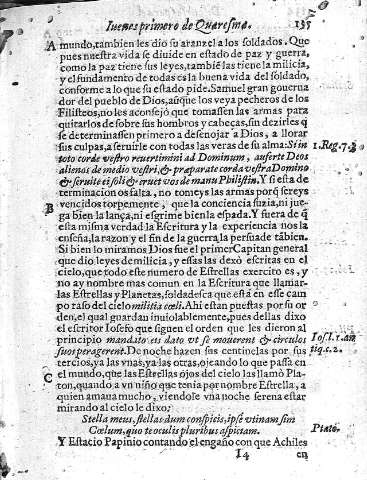 Iueues primero de Quaresma. 135
A mundo, tambien les dio su aranzel a los soldados. Que
pues nuestra vida se diuide en estado de paz y guerra,
como la paz tiene sus leyes, tambiẽ las tiene la milicia,
y el fundamento de todas es la buena vida del soldado,
conforme a lo que su estado pide. Samuel gran gouerna
dor del pueblo de Dios, aũque los veya pecheros de los
Filisteos, no les aconsejò que tomassen las armas para
quitarlos de sobre sus hombros y cabeças, sin dezirles q̃
se determinassen primero a desenojar a Dios, a llorar
sus culpas, a seruirle con todas las veras de su alma: Si in 1. Reg. 7. 3
toto corde vestro reuertimini ad Dominum, auferte Deos
alienos de medio vestri, & præparate corda vestra Domino
& seruite ei soli & eruet vos de manu Philistin. Y si esta de
terminacion os falta, no tomeys las armas porq̃ sereys
B vencidos torpemente, que la conciencia suzia, ni jue-
ga bien la lança, ni esgrime bien la espada. Y fuera de q̃
esta misma verdad la Escritura y la experiencia nos la
enseña, la razon y el fin de la guerra, la persuade tãbien.
Si bien lo miramos Dios fue el primer Capitan general
que dio leyes de milicia, y essas las dexò escritas en el
cielo, que todo este numero de Estrellas exercito es, y
no ay nombre mas comun en la Escritura que llamar-
las Estrellas y Planetas, soldadesca que està en esse cam
po raso del cielo militia cœli. Ahi estan puestas por su or
den, el qual guardan inuiolablemente, pues dellas dixo
el escritor Iosefo que siguen el orden que les dieron al
principio mandato eis dato vt se mouerent & circulos Ios. l. 1. an
suos peragerent. De noche hazen sus centinelas por sus tiq. c. 2.
tercios, ya las vnas, ya las otras, ojeando lo que passa en
C el mundo, que las Estrellas ojos del cielo las llamò Pla-
ton, quando a vn niño que tenia por nombre Estrella, a
quien amaua mucho, viendole vna noche serena estar
mirando al cielo le dixo:
Stella meus, stellas dum conspicis, ipse vtinam sim
Cœlum, quo te oculis pluribus aspiciam. Plato.
Y Estacio Papinio contando el engaño con que Achiles
I4 en